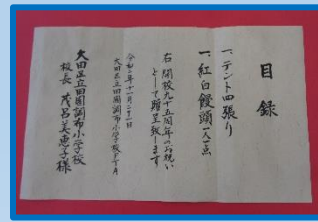 目録
一、テント四張り
一、紅白饅頭一人一点
右 開校九十五周年のお祝い
として贈呈致します
令和二年十一月二十一日
大田区立田園調布小学校PTA
大田区立田園調布小学校
校長 茂呂美恵子様